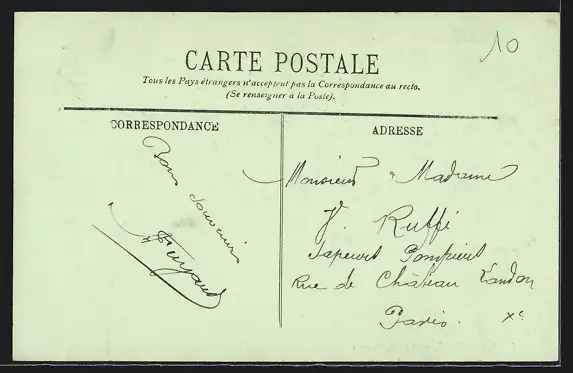 10
CARTE POSTALE
Tous les Pays étrangers n'acceptent pas la Correspondance au recto.
(Se renseigner à la Poste).
CORRESPONDANCE
Bons souvenirs
ADRESSE
Monsieur & Madame
Ruffi
Sapeurs Pompiers
Rue de Château Landon
Paris. Xe